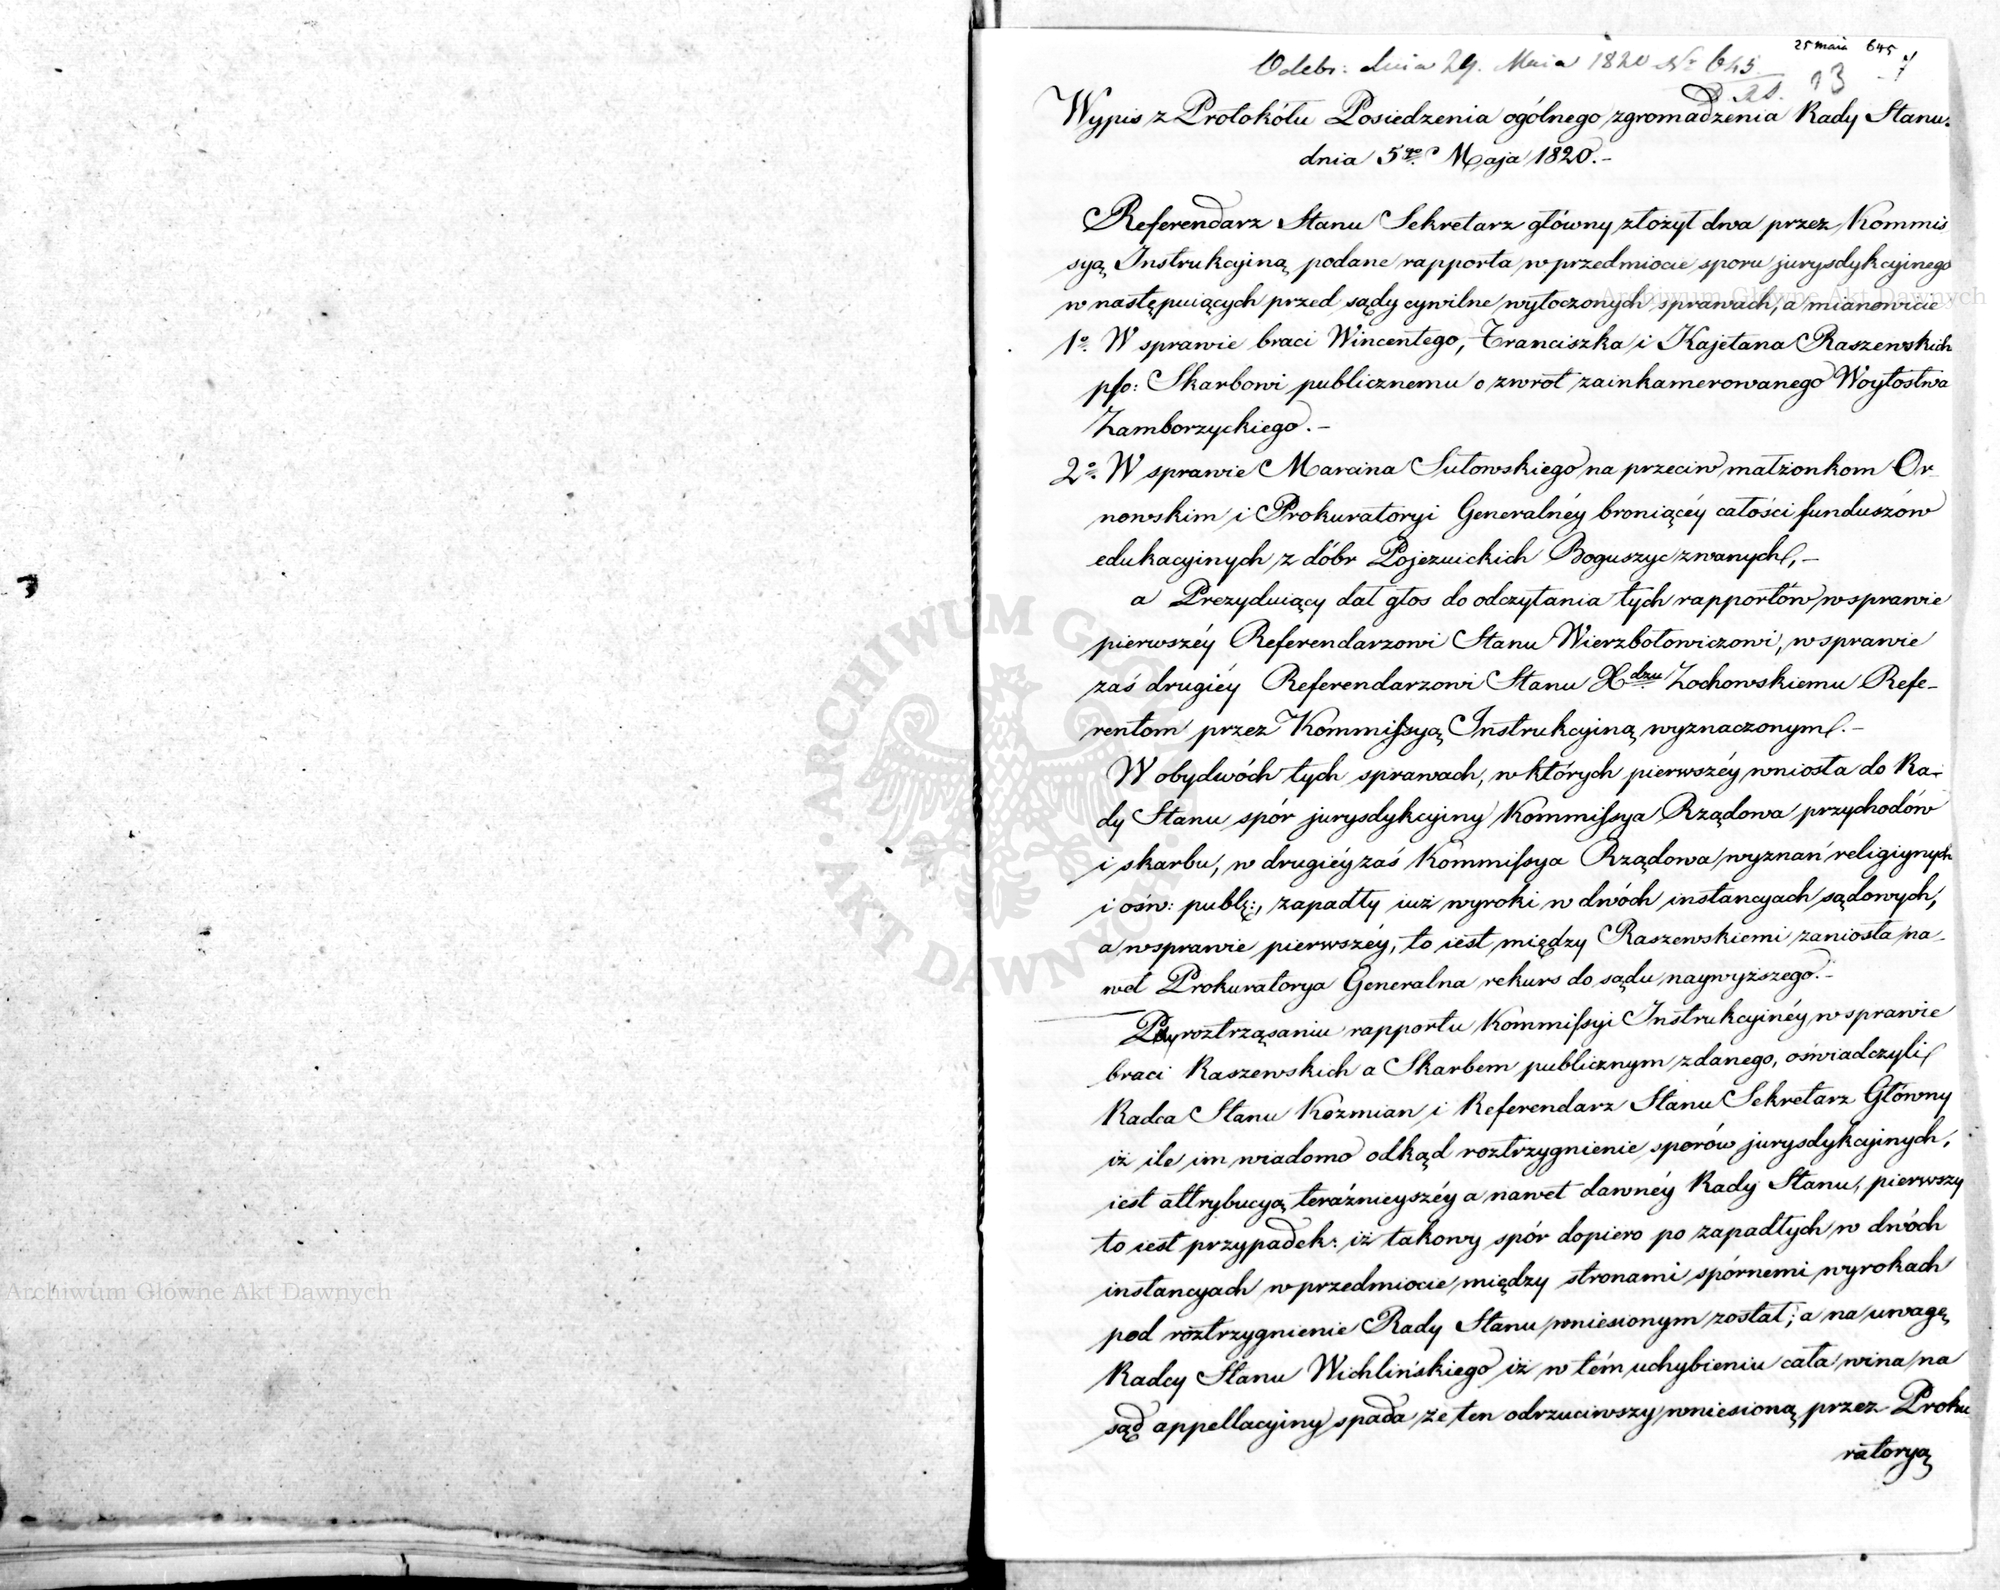 25 maia 645
Odebr: dnia 29. Maia 1820 Nr 645
13
Wypis z Protokółu Posiedzenia ogólnego zgromadzenia Rady Stanu.
dnia 5go Maja 1820.–
Referendarz Stanu Sekretarz główny złożył dwa przez Kommis
syą Instrukcyiną podane rapporta w przedmiocie sporu jurysdykcyinego
w następuiących przed sądy cywilne wytoczonych sprawach, a mianowicie
1o. W sprawie braci Wincentego, Franciszka i Kajetana Raszewskich
pko: Skarbowi publicznemu o zwrot zainkamerowanego Woytostwa
Zamborzyckiego.–
2o. W sprawie Marcina Sułowskiego na przeciw małżonkom Or-
nowskim i Prokuratoryi Generalnéy broniącéy całości funduszów
edukacyinych z dóbr Pojezuickich Boguszyc zwanych,–
a Prezyduiący dał głos do odczytania tych rapportów w sprawie
pierwszéy Referendarzowi Stanu Wierzbołowiczowi, w sprawie
zaś drugiéy Referendarzowi Stanu Xdzu Zochowskiemu Refe-
rentom przez Kommissyą Instrukcyiną wyznaczonym.–
W obydwóch tych sprawach, w których pierwszéy wniosła do Ra-
dy Stanu spór jurysdykcyiny Kommissya Rządowa przychodów
i skarbu, w drugiéy zaś Kommissya Rządowa wyznań religiynych
i ośw: publ:, zapadły iuż wyroki w dwóch instancyach sądowych,
a w sprawie pierwszéy, to iest między Raszewskiemi zaniosła na-
wet Prokuratorya Generalna rekurs do sądu naywyższego.–
Przy roztrząsaniu rapportu Kommissyi Instrukcyinéy w sprawie
braci Raszewskich a Skarbem publicznym zdanego, oświadczyli
Radca Stanu Kozmian i Referendarz Stanu Sekretarz Główny
iż ile im wiadomo odkąd roztrzygnienie sporów jurysdykcyinych,
iest attrybucyą teraźnieyszéy a nawet dawnéy Rady Stanu, pierwszy
to iest przypadek: iż takowy spór dopiero po zapadłych w dwóch
instancyach w przedmiocie między stronami spórnemi wyrokach
pod roztrzygnienie Rady Stanu wniesionym został; a na uwagę
Radcy Stanu Wichlińskiego iż w tém uchybieniu cała wina na
sąd appellacyiny spada że ten odrzuciwszy wniesioną przez Proku
ratoryą
Archiwum Główne Akt Dawnych
Archiwum Główne Akt Dawnych
ARCHIWUM GŁÓWNE AKT DAWNYCH